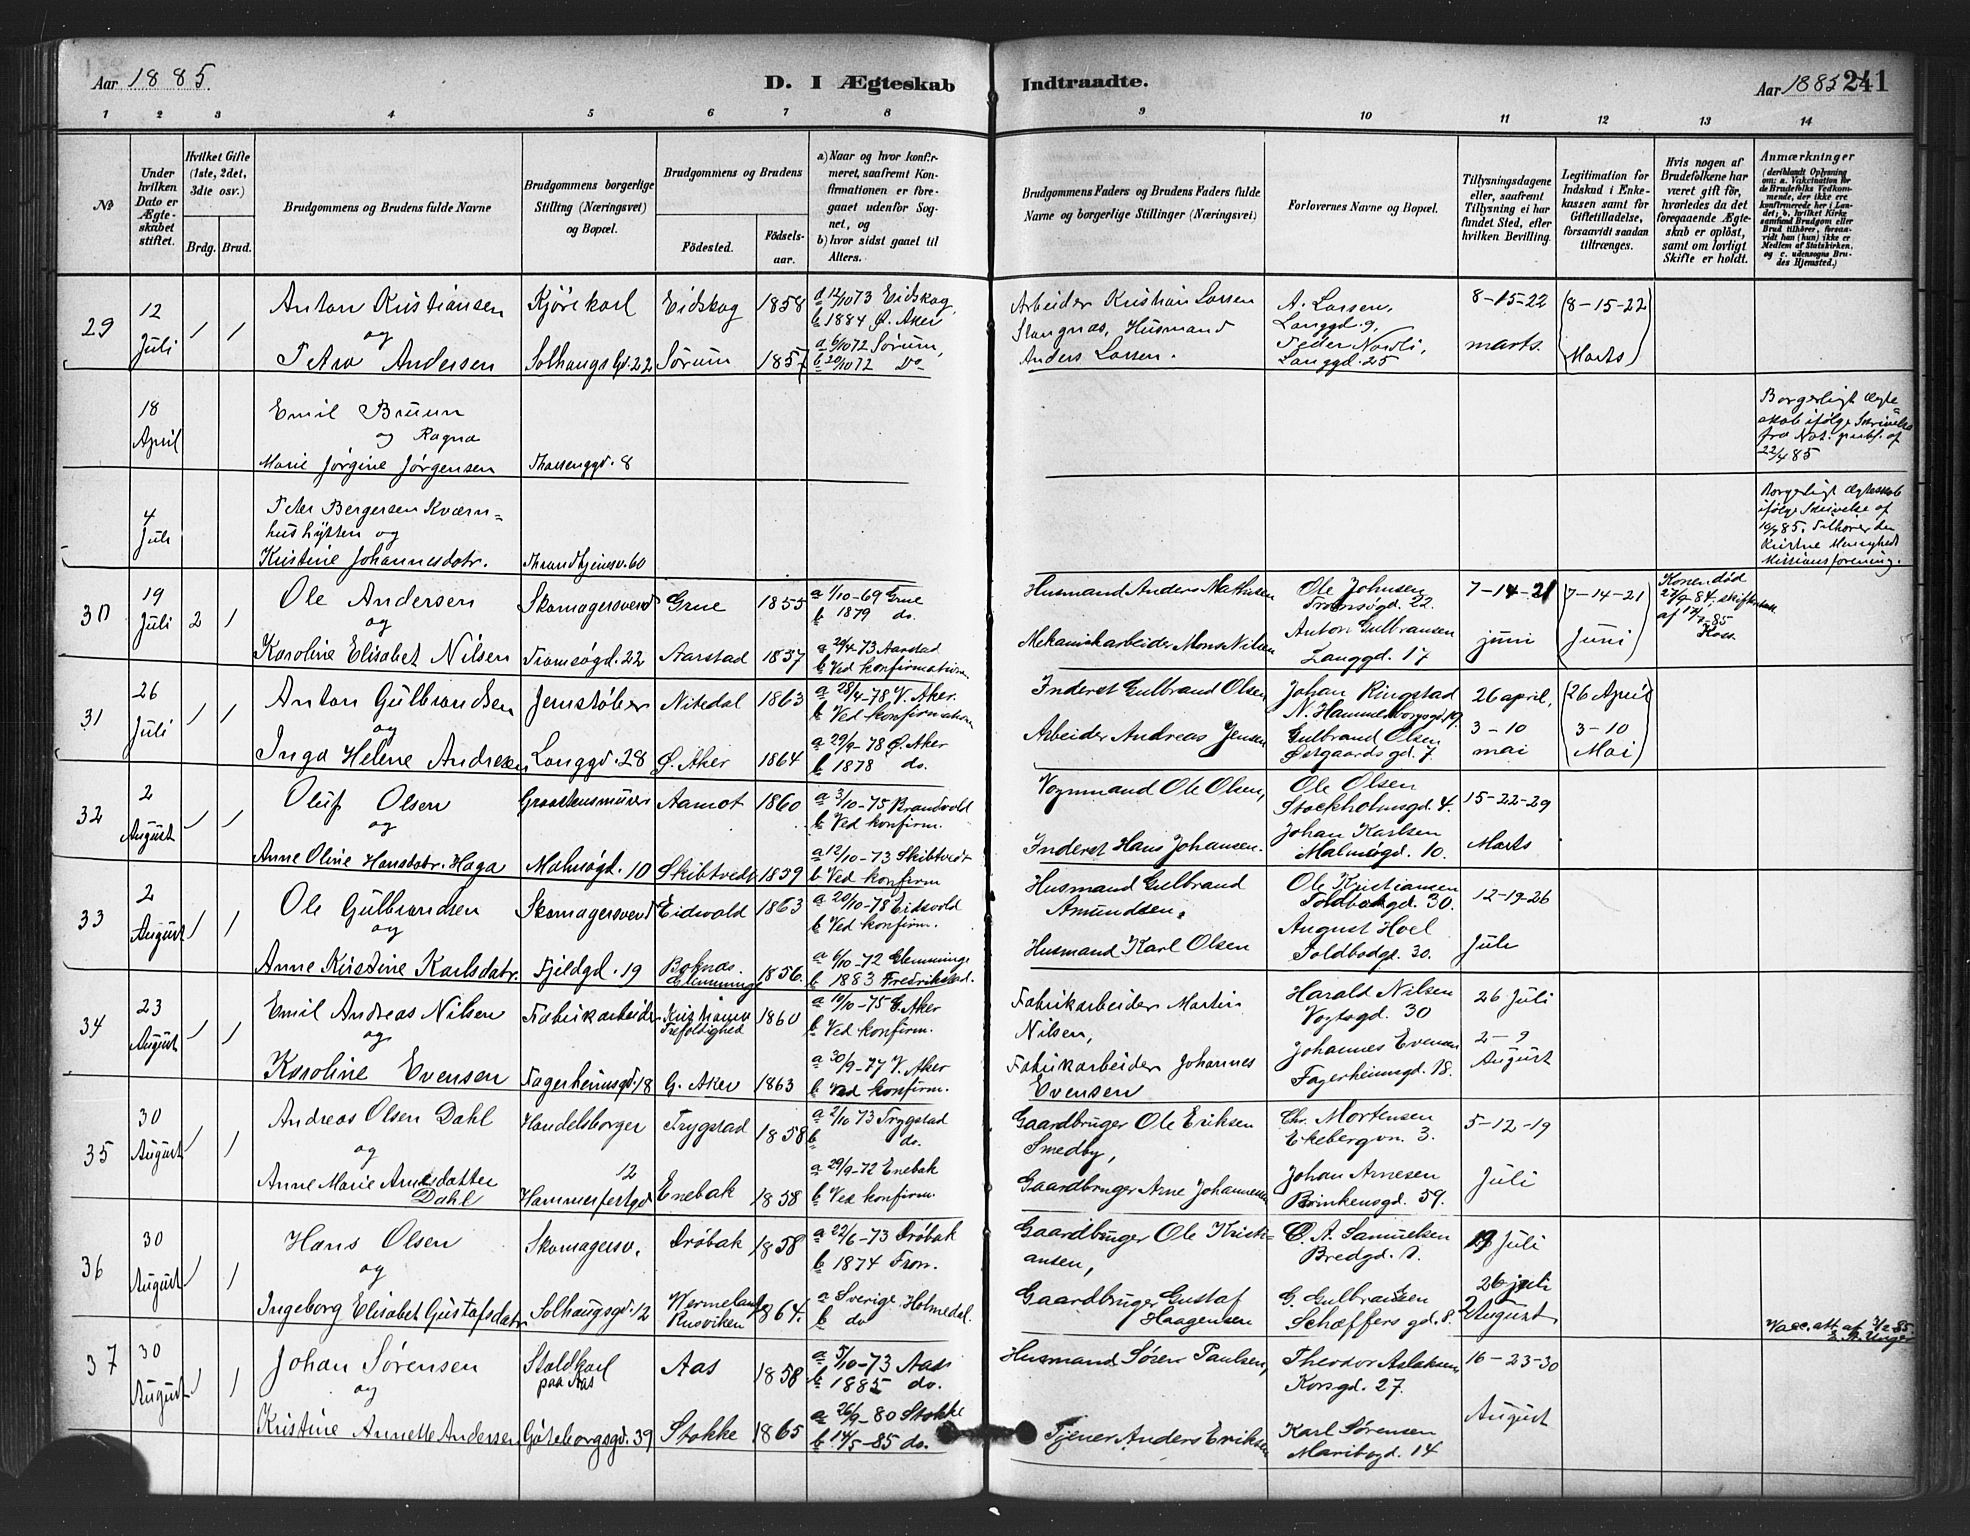 Aar 1885.
D. I Ægteskab
Indtraadte.
Aar 1885 241
1 2 3 4 5 6 7 8 9 10 11 12 13 14
No
Under hvilken Dato er Ægteskabet stiftet.
Hvilket Gifte (1ste, 2det, 3die osv.)
Brdg. Brud.
Brudgommens og Brudens fulde Navne
Brudgommens borgerlige Stilling (Næringsvei) og Bopæl.
Brudgommens og Brudens
Fødested.
Fødselsaar.
a) Naar og hvor konfirmeret, saafremt Konfirmationen er foregaaet udenfor Sognet, og
b) hvor sidst gaaet til Alters.
Brudgommens Faders og Brudens Faders fulde Navne og borgerlige Stillinger (Næringsvei)
Forlovernes Navne og Bopæl.
Tillysningsdagene eller, saafremt Tillysning ei har fundet Sted, efter hvilken Bevilling.
Legitimation for Indskud i Enkekassen samt for Giftetilladelse, forsaavidt saadan tiltrænges.
Hvis nogen af Brudefolkene har været gift før, hvorledes da det foregaaende Ægteskab er opløst, samt om lovligt Skifte er holdt.
Anmærkninger (deriblandt Oplysning om: a. Vakcination for de Brudefolks Vedkommende, der ikke ere konfirmerede her i Landet; b. hvilket Kirkesamfund Brudgom eller Brud tilhører, forsaavidt han (hun) ikke er Medlem af Statskirken, og c. udensogns Brudes Hjemsted.)
29
12 Juli
1 1
Anton Kristiansen
og
Petra Andersen
Kjørekarl
Solhaugs Gd. 22
Eidskog 1858
Sørum 1857
a 12/10 73 Eidskog,
b 1884 Ø. Aker
a 6/10 72 Sørum,
b 20/10 72 Do
Arbeider Kristian Larsen
Slangnæs, Husmand
Anders Larsen.
A. Larsen,
Langgd. 9,
Peder Nordli,
Langgd. 25
8-15-22
marts.
(8-15-22
Marts)
18 April
Emil Bruun
og Ragna
Marie Jørgine Jørgensen
Borgerligt Ægteskab ifølge Skrivelse
fra Not. publ. af
22/4 85
4 Juli
Peter Bergersen Kværnhushytten og
Kristine Johannesdatr.
Thrandhjemsv. 60
Borgerligt Ægteskab
ifølge Skrivelse af
10/7 85. Tilhører den
Kristne Menighed
Missionsforening.
30
19 Juli
2 1
Ole Andersen
og
Karoline Elisabet Nilsen
Skomagersvend
Tromsøgd. 22
Grue 1855
Aarstad 1857
a 1/10-69 Grue
b 1879 do.
a 20/4-73 Aarstad
b Ved konfirmationen
Husmand Anders Mathisen
Mekanikarbeider Mons Nilsen
Ole Johnsen
Tromsøgd. 22.
Anton Gulbransen
Langgd. 17
7-14-21
juni
(7-14-21
Juni)
Konen død
27/9-84, skifteattest
af 17/7-85
31
26 Juli
1 1
Anton Gulbrandsen
og
Inga Helene Andresen
Jernstøber
Langgd. 28
Nitedal 1863
Ø. Aker 1864
a 28/4-78 V. Aker.
b Ved konfirmation
a 29/9-78 Ø. Aker
b 1878 do.
Inderst Gulbrand Olsen
Arbeider Andreas Jensen
Johan Ringstad
N. Hammerborgsgd. 19.
Gulbrand Olsen
Østgaards gd. 7.
26 april,
3-10
mai
(26 April
3-10
Mai)
32
2 August
1 1
Oluf Olsen
og
Anne Oline Hansdatr. Haga
Graastensmurer
Malmøgd. 10
Aamot 1860
Skibtvedt 1859
a 3/10-75 Brandvold
b Ved konfirm.
a 12/10-73 Skibtvedt
b Ved konfirm
Vognmand Ole Olsen,
Inderst Hans Johansen.
Ole Olsen
Stockholmsgd. 4.
Johan Karlsen
Malmøgd. 10.
15-22-29
Marts
33
2 August
1 1
Ole Gulbrandsen
og
Anne Kirstine Karlsdatr.
Skomagersvend
Fjeldgd. 19
Eidsvold 1863
Glemminge 1856.
a 20/10-78 Eidsvold
b Ved konfirm.
a 6/10-72 Glemminge
b 1883 Fredrikstad.
Husmand Gulbrand
Amundsen,
Husmand Karl Olsen
Ole Kristiansen
Toldbodgd. 30.
August Hoel
Toldbodgd. 30.
12-19-26
Juli
34
23 August
1 1
Emil Andreas Nilsen
og
Karoline Evensen
Fabrikarbeider
Fagerheimsgd. 18
Kristiania
Trefoldighed 1860
G. Aker 1863
a 10/10-75 G. Aker
b Ved konfirm.
a 30/9-77 V. Aker
b Ved konfirm.
Fabrikarbeider Martin
Nilsen,
Fabrikarbeider Johannes
Evensen
Harald Nilsen
Vogtsgd. 30
Johannes Evensen
Fagerheimsgd. 18.
26 Juli
2-9
August
35
30 August
1 1
Andreas Olsen Dahl
og
Anne Marie Arnesdatter
Dahl
Handelsborger
12
Hammerfestgd
Trygstad 1858
Enebak 1858
a 2/10 73 Trygstad
b do.
a 29/9-72 Enebak
b Ved konfirm.
Gaardbruger Ole Eriksen
Smedby,
Gaardbruger Arne Johannesen
Chr. Mortensen
Ekebergvn. 3.
Johan Arnesen
Brinkensgd. 59.
5-12-19
Juli
36
30 August
1 1
Hans Olsen
og
Ingeborg Elisabet Gustafsdatr
Skomagersv.
Solhaugsgd. 12
Drøbak 1858
Wermeland 1864.
a 22/6-73 Drøbak
b 1874 Fron.
a Sverige, Holmedal.
b do
Gaardbruger Ole Kristiansen,
Gaardbruger Gustaf
Haagensen
O. A. Samuelsen
Bredgd. 1.
G. Gulbransen
Schæffers gd. 8.
19 Juli
26 juli
2 August
Vacc. att. af 3/2 85
37
30 August
1 1
Johan Sørensen
og
Kristine Annette Andersen
Staldkarl
paa Aas
Gøteborgsgd. 39
Aas 1858
Stokke 1865
a 5/10-73 Aas
b 1885 do.
a 26/9-80 Stokke
b 14/5-85 do.
Husmand Søren Paulsen,
Tjener Anders Eriksen
Theodor Aslaksen
Korsgd. 27.
Karl Sørensen
Maribogd. 14
16-23-30
August